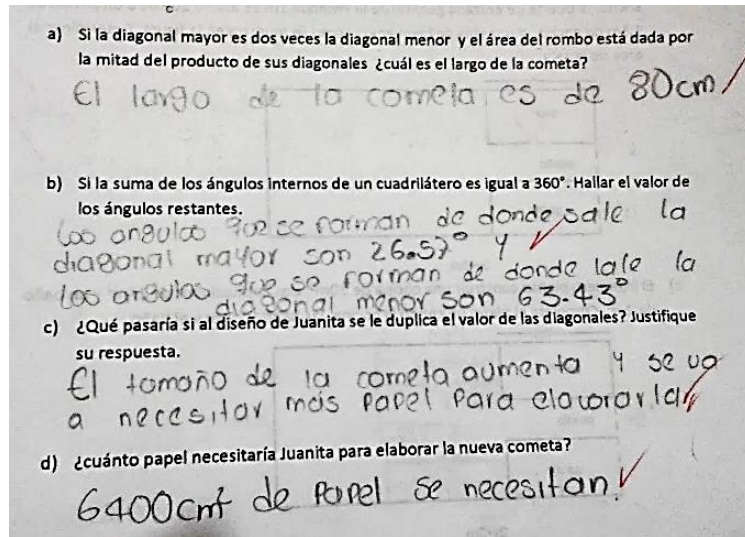 a) Si la diagonal mayor es dos veces la diagonal menor y el área del rombo está dada por
la mitad del producto de sus diagonales ¿cuál es el largo de la cometa?
El largo de la cometa es de 80cm
b) Si la suma de los ángulos internos de un cuadrilátero es igual a 360°. Hallar el valor de
los ángulos restantes.
Los angulos que se forman de donde sale la
diagonal mayor son 26.57° y
los angulos que se forman de donde sale la
diagonal menor son 63.43°
c) ¿Qué pasaría si al diseño de Juanita se le duplica el valor de las diagonales? Justifique
su respuesta.
El tamaño de la cometa aumenta y se va
a necesitar más papel para elaborarla
d) ¿cuánto papel necesitaría Juanita para elaborar la nueva cometa?
6400cm² de papel se necesitan.